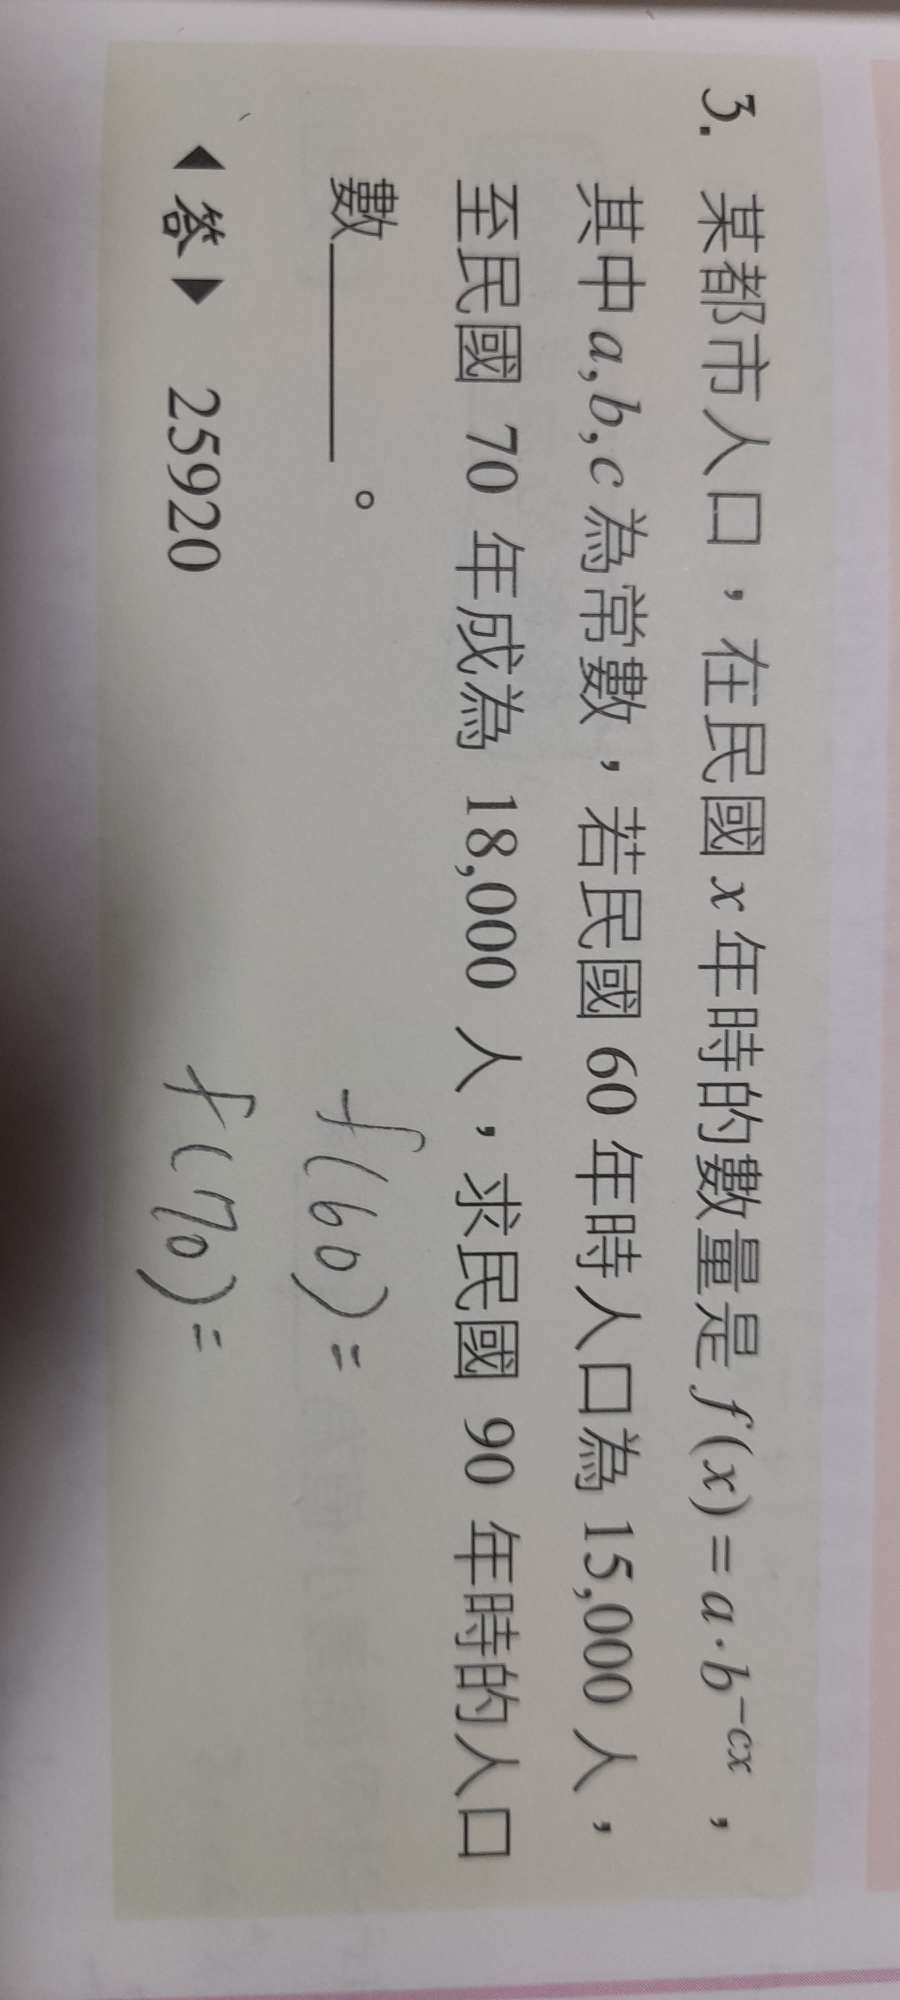 3. 某都市人口，在民國 x 年時的數量是 f(x)=a·b^{-cx}，
其中 a,b,c 為常數，若民國 60 年時人口為 15,000 人，
至民國 70 年成為 18,000 人，求民國 90 年時的人口
數______。
◀答▶ 25920
f(60)=
f(70)=